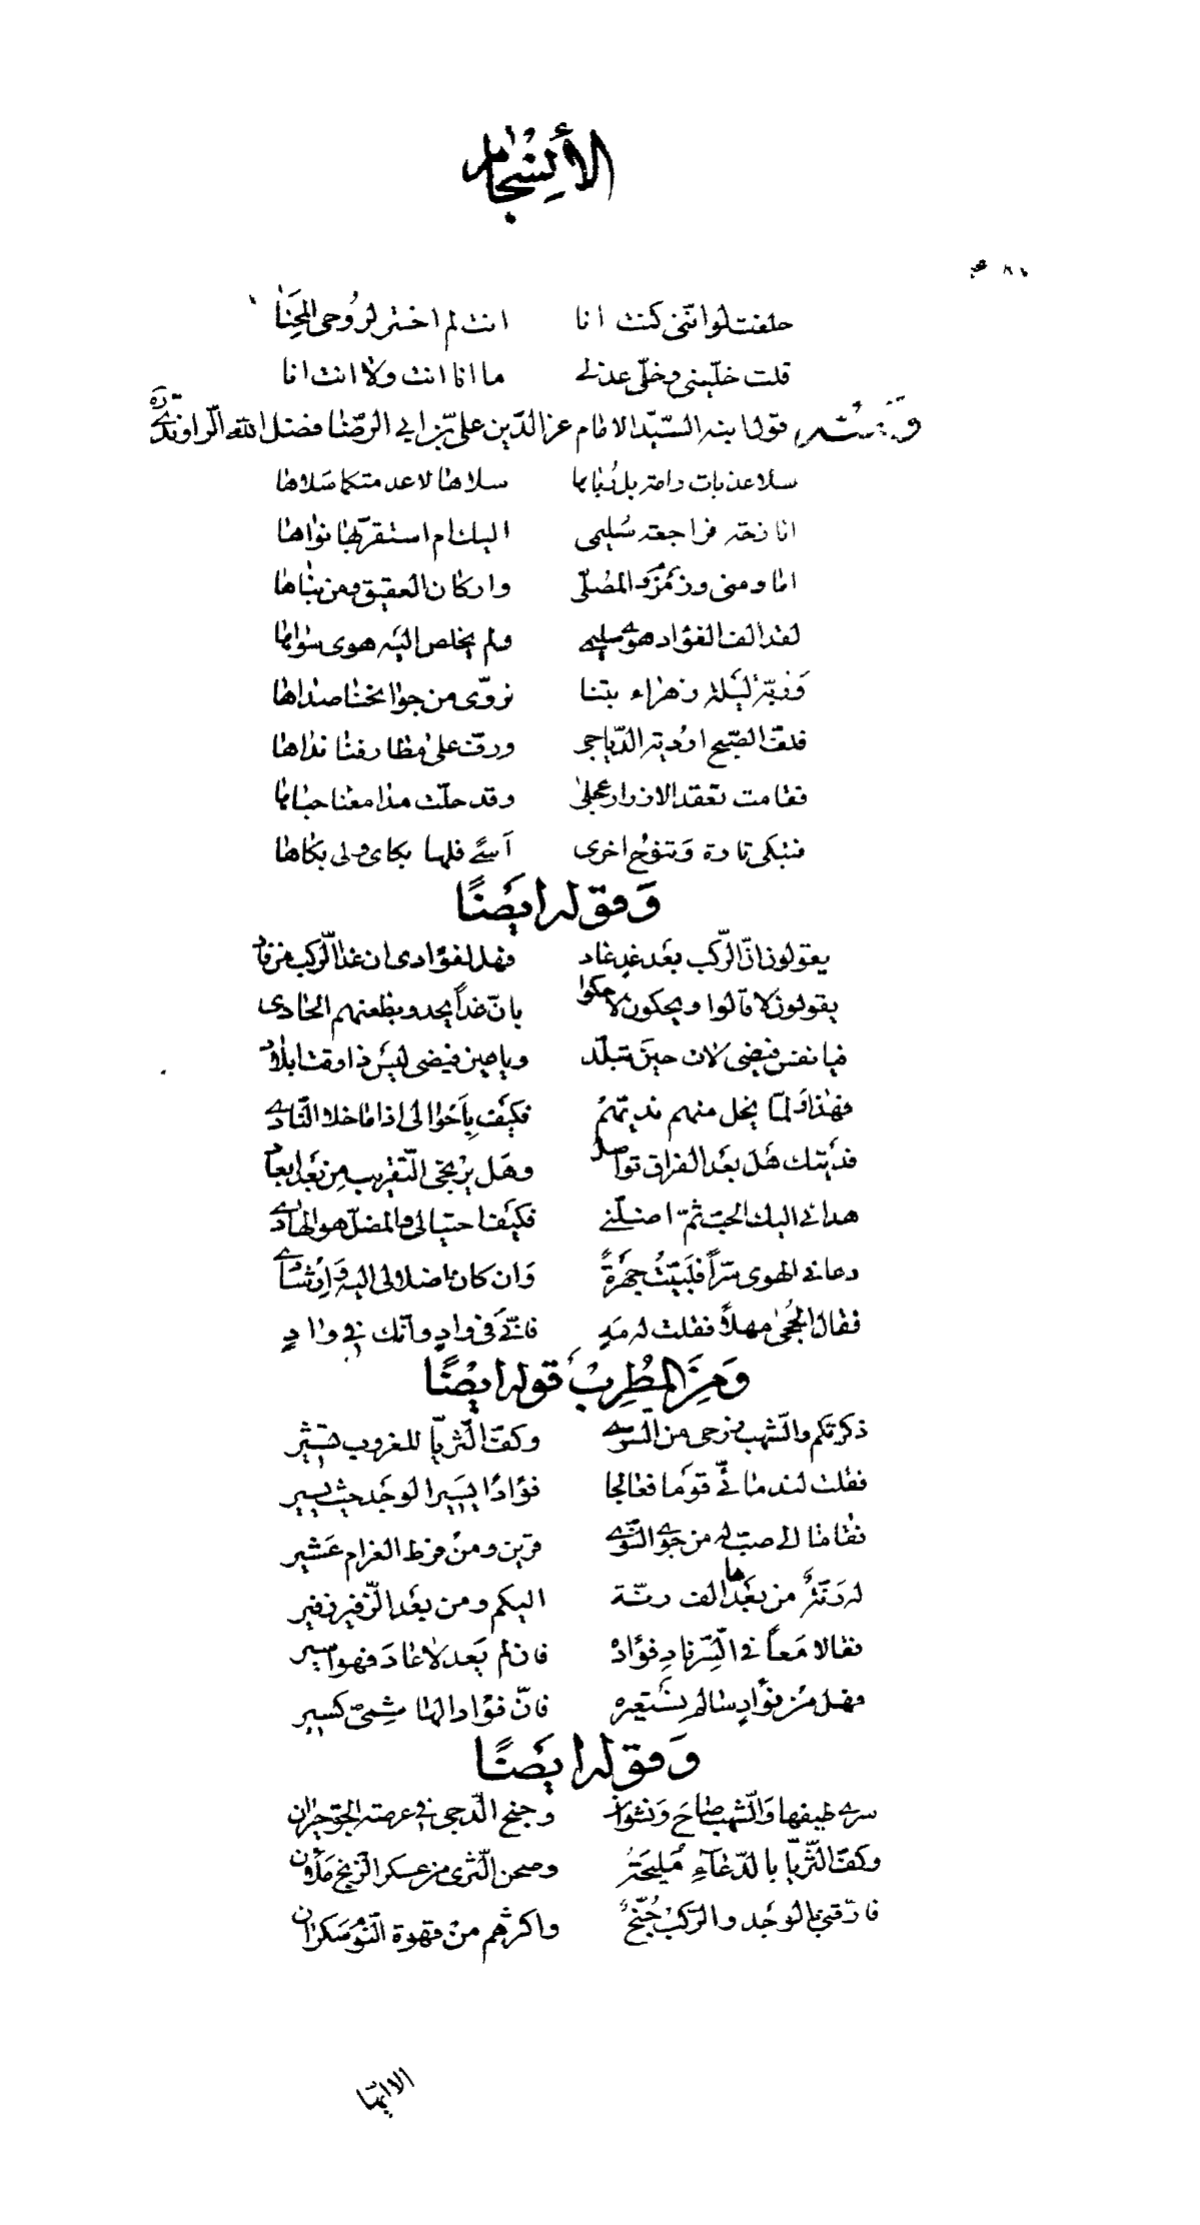 الأنسجام
حلفت لو انني كنت انا انت لم اختر لروحي المحنا
قلت خليني وخلي عذلي ما انا انت ولا انت انا
ومنه قول ابنه السيد الامام عز الدين علي بن ابي الرضا فضل الله الراوندي
سلا عذبات رامة بل رباها سلاها لا عدمتكما سلاها
انازحة فراجعة سليمى اليك ام استقر بها نواها
اما ومنى وزمزم والمصلى واركان العقيق ومن بناها
لقد الف الفؤاد هوى سليمى ولم يخلص اليه هوى سواها
وفي ليلة زهراء بتنا نروي من جوانحنا صداها
فلق الصبح اودية الدياجي ورق على مطارفنا نداها
فقامت تعقد الازرار عجلى وقد حلت مدامعنا حباها
فنبكي تارة وتنوح اخرى أسى فلها بكاي ولي بكاها
وقوله ايضًا
يقولون ان الركب بعد غد غاد فهل لفؤادي ان غدا الركب من فاد
يقولون لا قالوا ويحكون لا حكوا بان غداً يحدو بظعنهم الحادي
فيا نفس فيضي لات حين تبلد ويا عين فيضي ليس ذا وقت ابلاد
فهذا ولما يخل منهم نديهم فكيف باحوالي اذا ما خلا النادي
فديتك هل بعد الفراق تواصل وهل يرتجى التقريب من بعد ابعاد
هداني اليك الحب ثم اضلني فكيف احتيالي والمضل هو الهادي
دعاني الهوى سراً فلبيت جهرةً وان كان اضلالي اليه وارشادي
فقال الحجى مهلاً فقلت له مه فاني في واد وانك في واد
ومن المطرب قوله ايضًا
ذكرتكم والشهب مزجى من السرى وكف الثريا للغروب تشير
فقلت لندماني قوما فعالجا فؤادًا يسير الوجد حيث يسير
فقاما الى صب له من جوى النوى قرين ومن فرط الغرام عشير
له رنة من بعدها الف رنة اليكم ومن بعد الزفير زفير
فقالا معاً في السر ناد فؤاده فان لم يعد لا عاد فهو اسير
فهل من فؤاد سالم نستعيره فان فؤاد الهاشمي كسير
وقوله ايضًا
سرى طيفها والشهب صاح ونشوان وجنح الدجى في عرصة الجو حيران
وكف الثريا بالدعاء مليحة وصحن الثرى من عسكر الزنج ملآن
فارقني الوجد والركب جنح واكثرهم من قهوة النوم سكران